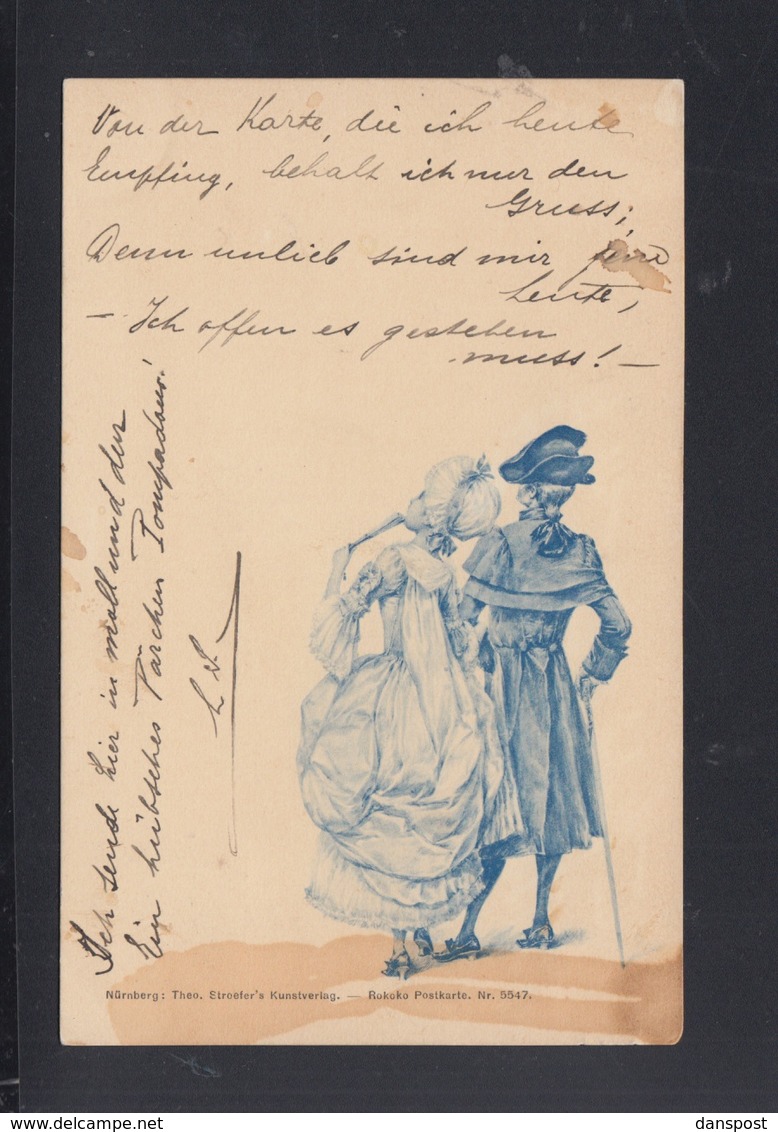 Von der Karte, die ich heute
Empfing, behalt ich nur den
Gruss;
Denn unlieb sind mir
Leute,
– Ich offen es gestehen
muss! –
Ich sende hier in moll und dur
Ein hübsches Pärchen Pompadour!
Nürnberg: Theo. Stroefer's Kunstverlag. — Rokoko Postkarte. Nr. 5547.
danspost